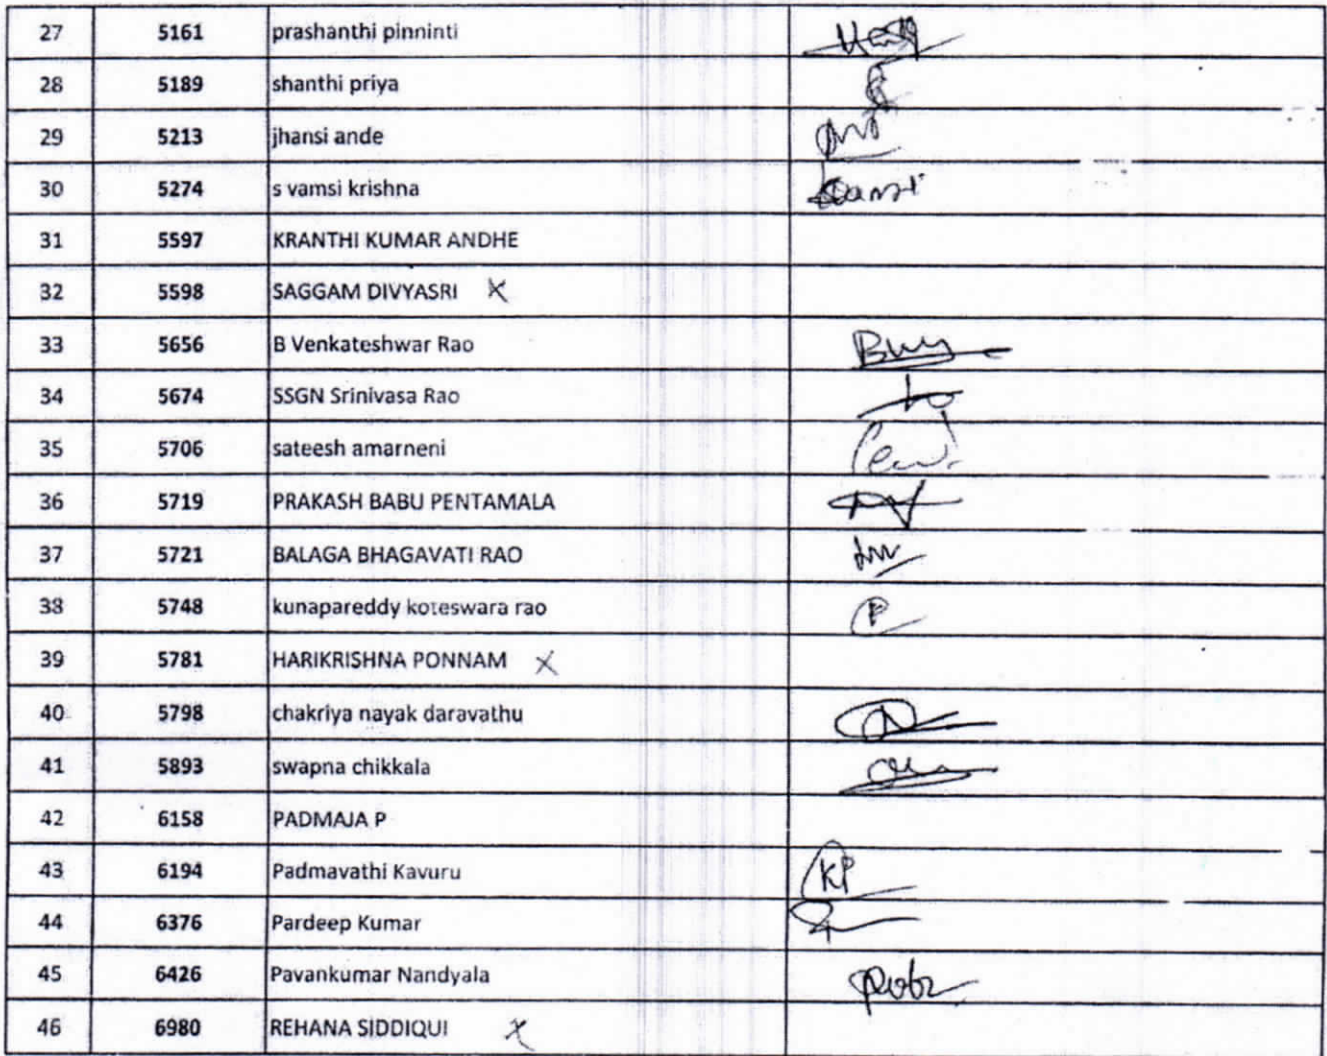 27 5161 prashanthi pinninti
28 5189 shanthi priya
29 5213 jhansi ande
30 5274 s vamsi krishna
31 5597 KRANTHI KUMAR ANDHE
32 5598 SAGGAM DIVYASRI X
33 5656 B Venkateshwar Rao
34 5674 SSGN Srinivasa Rao
35 5706 sateesh amarneni
36 5719 PRAKASH BABU PENTAMALA
37 5721 BALAGA BHAGAVATI RAO
38 5748 kunapareddy koteswara rao
39 5781 HARIKRISHNA PONNAM X
40 5798 chakriya nayak daravathu
41 5893 swapna chikkala
42 6158 PADMAJA P
43 6194 Padmavathi Kavuru KP
44 6376 Pardeep Kumar
45 6426 Pavankumar Nandyala
46 6980 REHANA SIDDIQUI X